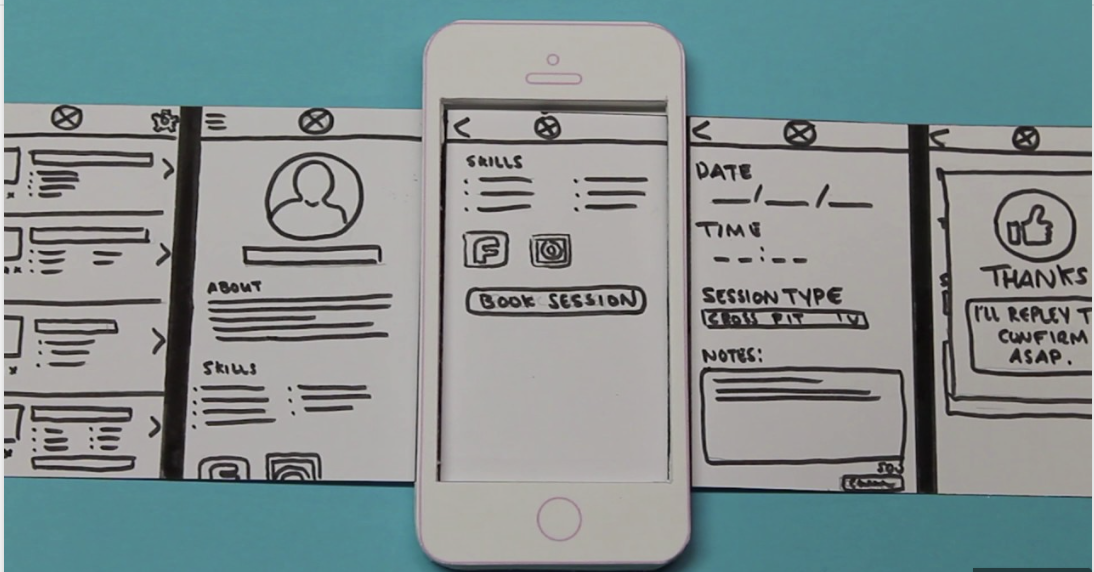 ABOUT
SKILLS
SKILLS
F
BOOK SESSION
DATE
__/__/__
TIME
__:__
SESSION TYPE
CROSS FIT
NOTES:
THANKS
I'LL REPLEY T
CONFIRM
ASAP.